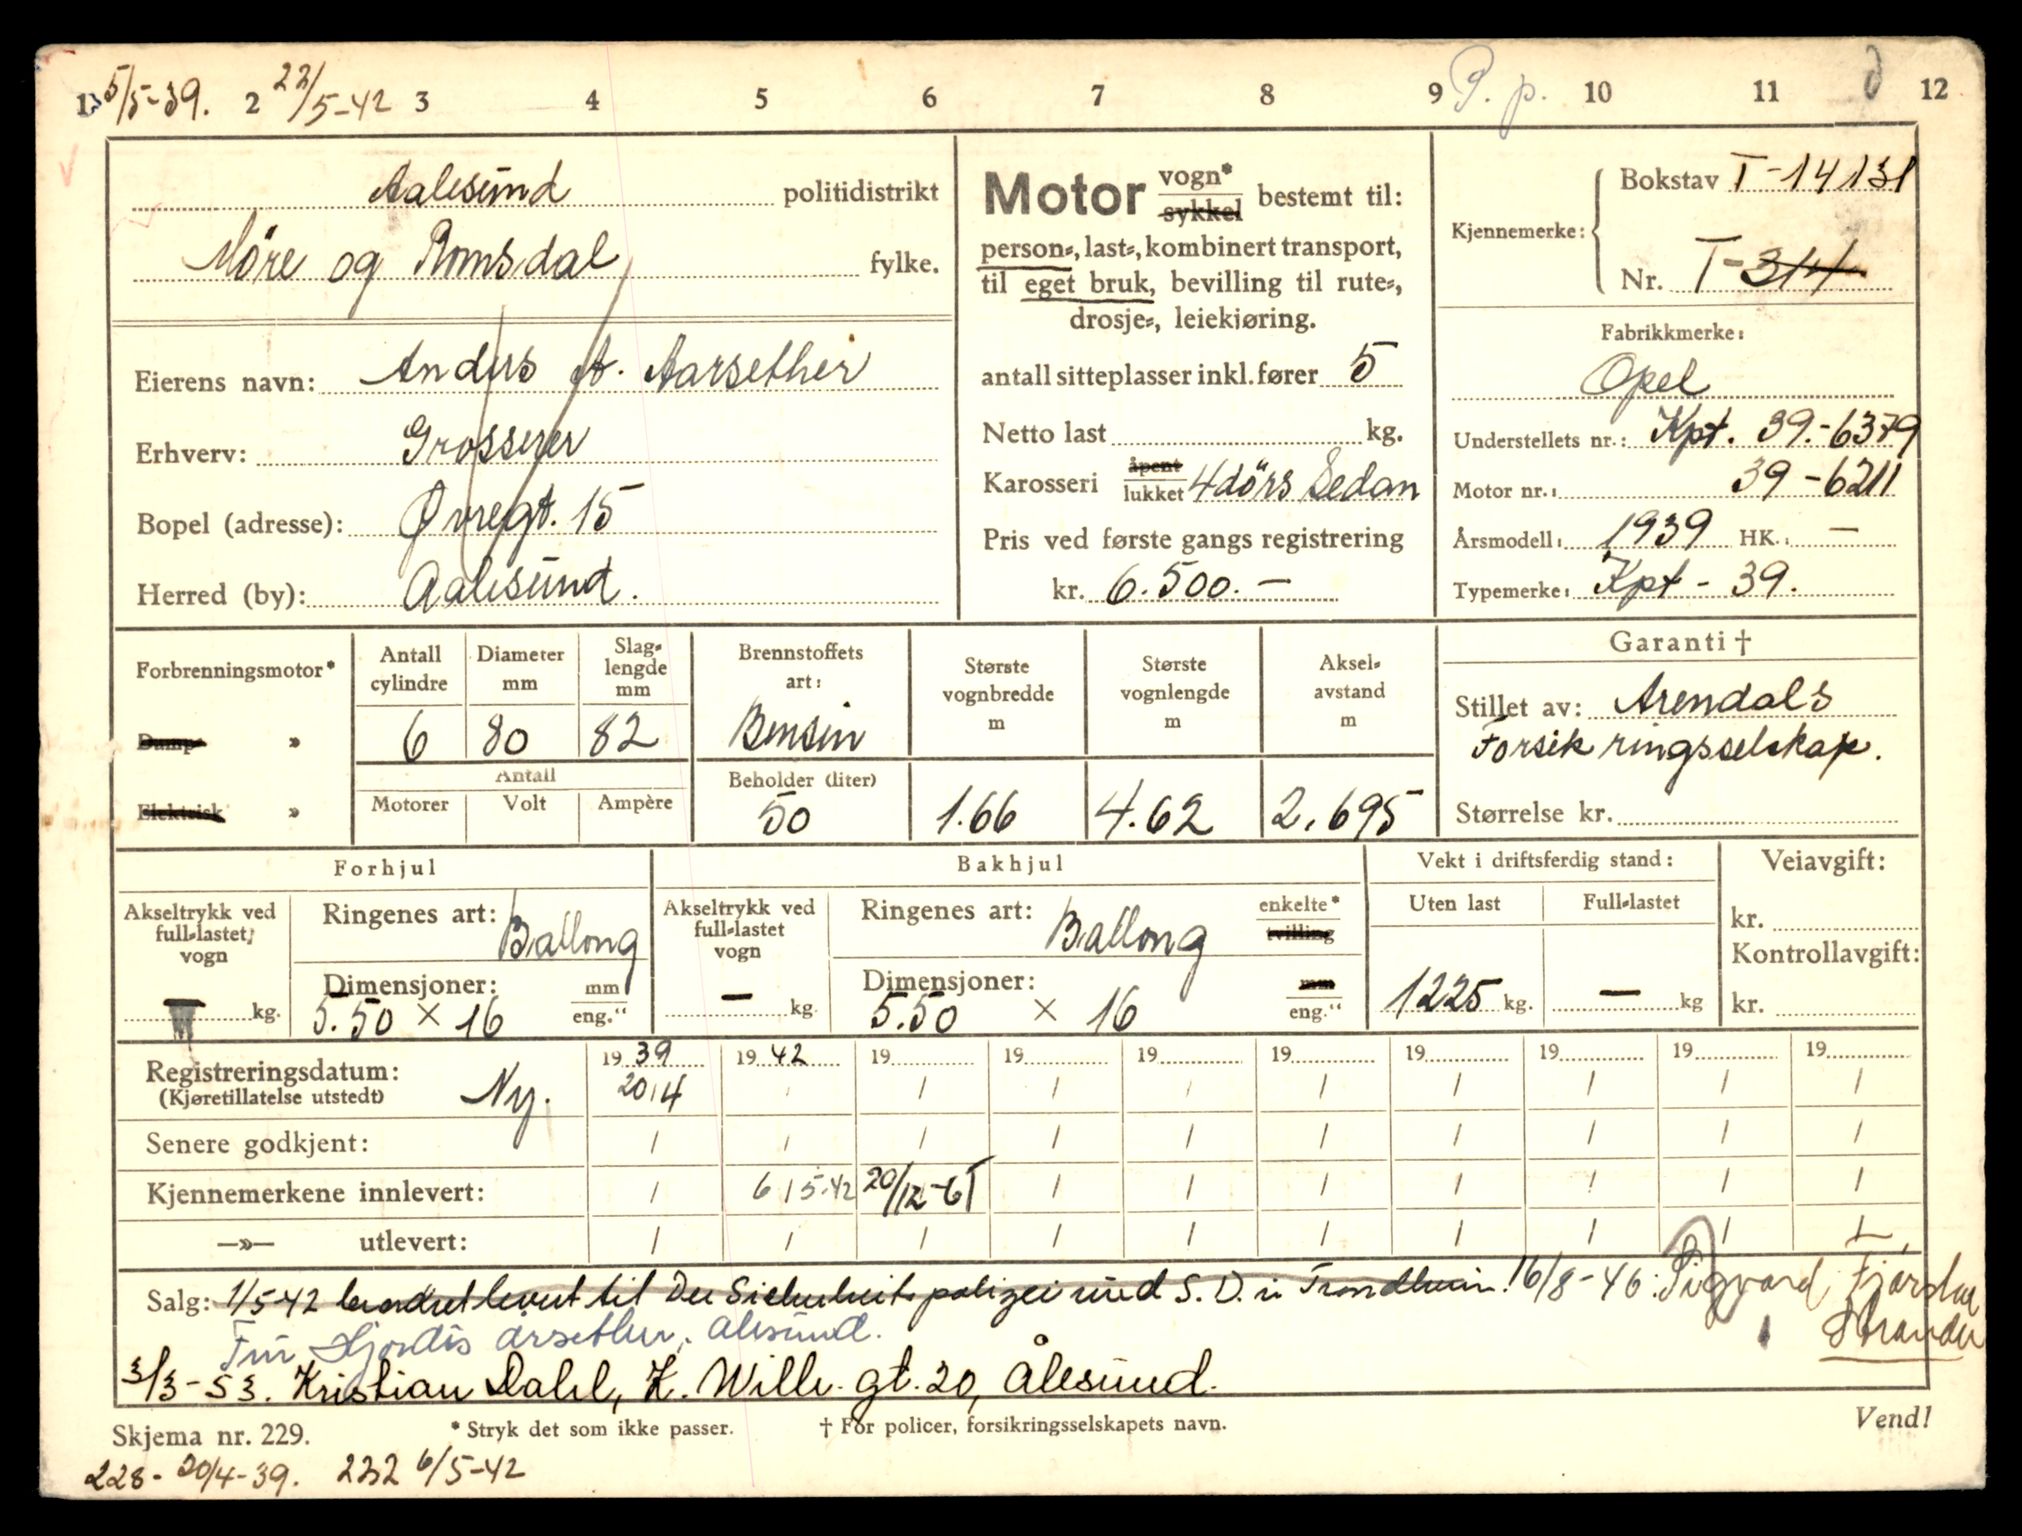 1 5/5-39. 2 22/5-42 3 4 5 6 7 8 9 P. p. 10 11 12
Aalesund politidistrikt
Möre og Romsdal fylke.
Eierens navn: Anders A. Aarsether
Erhverv: Grosserer
Bopel (adresse): Øvregt. 15
Herred (by): Aalesund.
Motor vogn* sykkel bestemt til:
person-, last-, kombinert transport,
til eget bruk, bevilling til rute-,
drosje-, leiekjøring.
antall sitteplasser inkl. fører 5
Netto last kg.
Karosseri åpent lukket 4dörs Sedan
Pris ved første gangs registrering
kr. 6.500.-
Kjennemerke:
Bokstav T-14131
Nr. T-314
Fabrikkmerke:
Opel
Understellets nr.: Kpt. 39.-6379
Motor nr.: 39-6211
Årsmodell: 1939 HK.: —
Typemerke: Kpt-39.
Forbrenningsmotor*
Damp- »
Elektrisk »
Antall cylindre
6
Diameter mm
80
Slag-lengde mm
82
Antall
Motorer Volt Ampère
Brennstoffets art:
Bensin
Beholder (liter)
50
Største vognbredde m
1.66
Største vognlengde m
4.62
Aksel-avstand m
2,695
Garanti †
Stillet av: Arendals
Forsikringsselskap.
Størrelse kr.
Forhjul
Akseltrykk ved full-lastet vogn
— kg.
Ringenes art: Ballong
Dimensjoner: mm eng."
5.50 × 16
Bakhjul
Akseltrykk ved full-lastet vogn
— kg.
Ringenes art: Ballong enkelte* tvilling
Dimensjoner: mm eng."
5.50 × 16
Vekt i driftsferdig stand:
Uten last Full-lastet
1225 kg. — kg
Veiavgift:
kr.
Kontrollavgift:
kr.
19 39 19 42 19 19 19 19 19 19 19 19
Registreringsdatum: Ny. 20/4 / / / / / / / / /
(Kjøretillatelse utstedt)
Senere godkjent: / / / / / / / / / /
Kjennemerkene innlevert: / 6/5-42 20/12-61 / / / / / / /
—»— utlevert: / / / / / / / / / /
Salg: 1/5-42 levert til Der Sicherheitspolizei und S.D. in Trondheim! 16/8-46: Sigvard Fjørstad
Fru Hjordis Årsether, Ålesund. Stranda
3/3-53. Kristian Dahl, K. Wilh. gt. 20, Ålesund.
Skjema nr. 229. * Stryk det som ikke passer. † For policer, forsikringsselskapets navn. Vend!
228- 20/4-39. 232 6/5-42